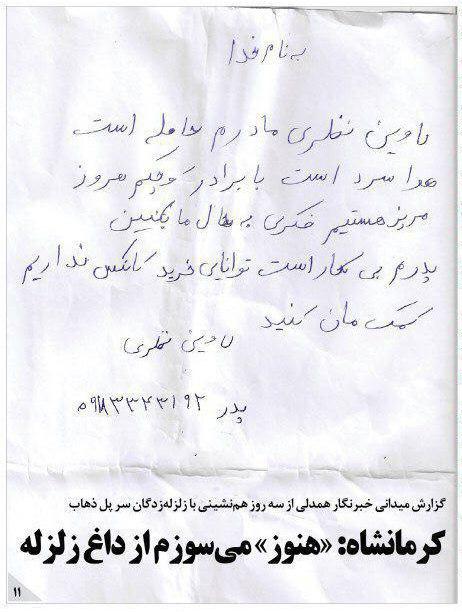 به نام خدا
مادرم حامله است
هوا سرد است با برادر کوچکم هر روز
مریز هستیم فکری به حال ما بکنیین
پدرم بی کار است توانایی خرید کانکس نداریم
کمک مان کنید
پدر
گزارش میدانی خبرنگار همدلی از سه روز هم‌نشینی با زلزله‌زدگان سر پل ذهاب
کرمانشاه: «هنوز» می‌سوزم از داغ زلزله
۱۱